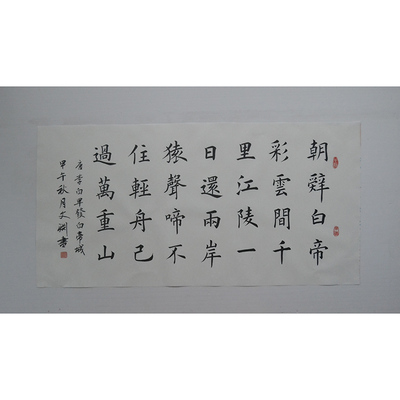 朝辭白帝
彩雲間千
里江陵一
日還兩岸
猿聲啼不
住輕舟已
過萬重山
唐李白早發白帝城
甲午秋月文書